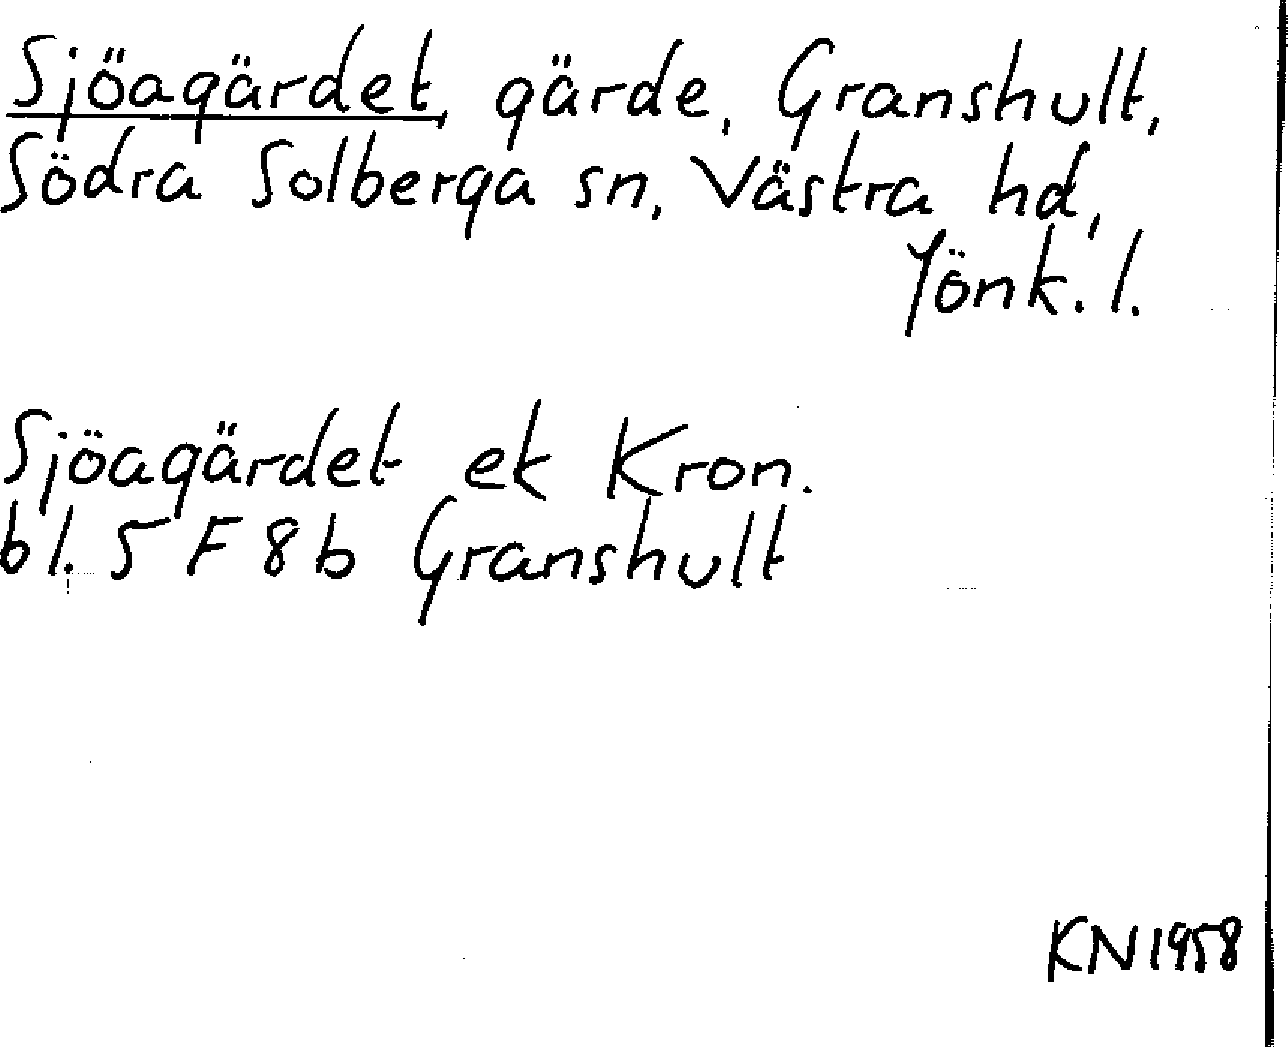 Sjöagärdet, gärde, Granshult,
Södra Solberga sn, Västra hd,
Jönk. l.
Sjöagärdet ek Kron.
bl. 5 F 8 b Granshult
KN 1958